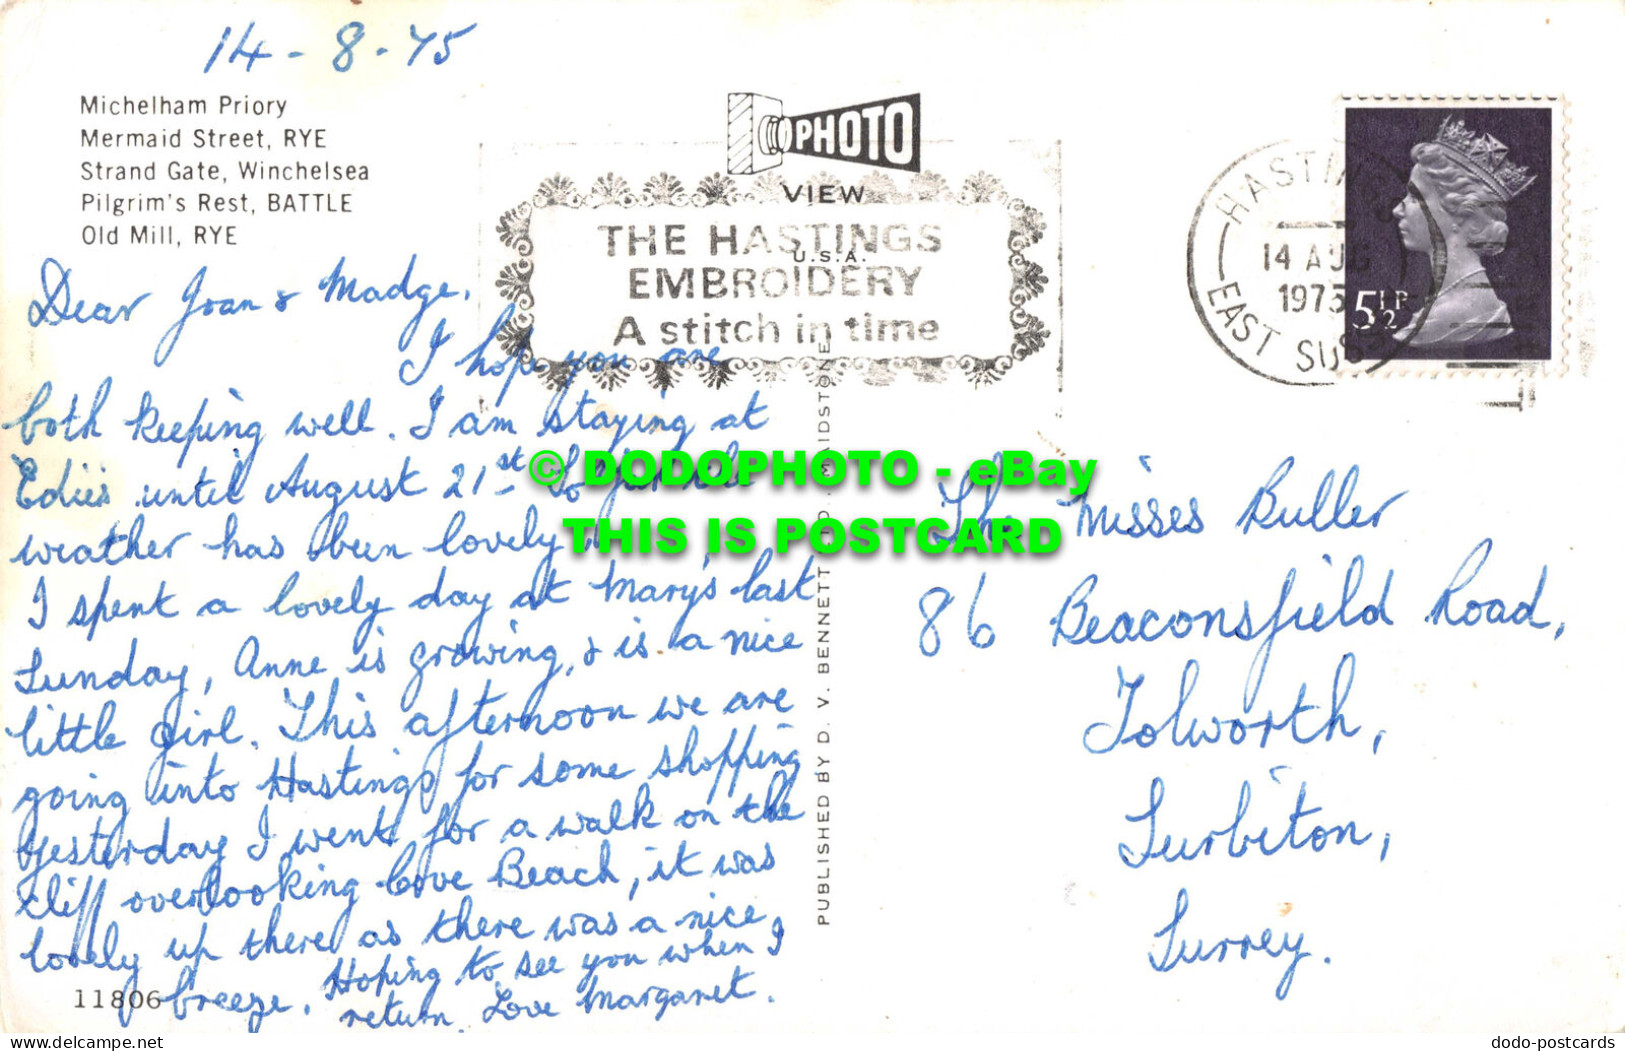 14-8-75
Michelham Priory
Mermaid Street, RYE
Strand Gate, Winchelsea
Pilgrim's Rest, BATTLE
Old Mill, RYE
Dear Joan & Madge,
I hope you are
both keeping well. I am staying at
Edies until August 21st So far the
weather has been lovely,
I spent a lovely day at Mary's last
Sunday, Anne is growing, & is a nice
little girl. This afternoon we are
going into Hastings for some shopping
yesterday I went for a walk on the
cliff overlooking Cove Beach, it was
lovely up there as there was a nice
breeze. Hoping to see you when I
return. Love Margaret.
11806
PHOTO
VIEW
U.S.A.
THE HASTINGS
EMBROIDERY
A stitch in time
HASTINGS
14 AUG
1975
EAST SUSS
5½P
PUBLISHED BY D. V. BENNETT MAIDSTONE
© DODOPHOTO - eBay
THIS IS POSTCARD
The Misses Buller
86 Beaconsfield Road,
Tolworth,
Surbiton,
Surrey.
www.delcampe.net
dodo-postcards